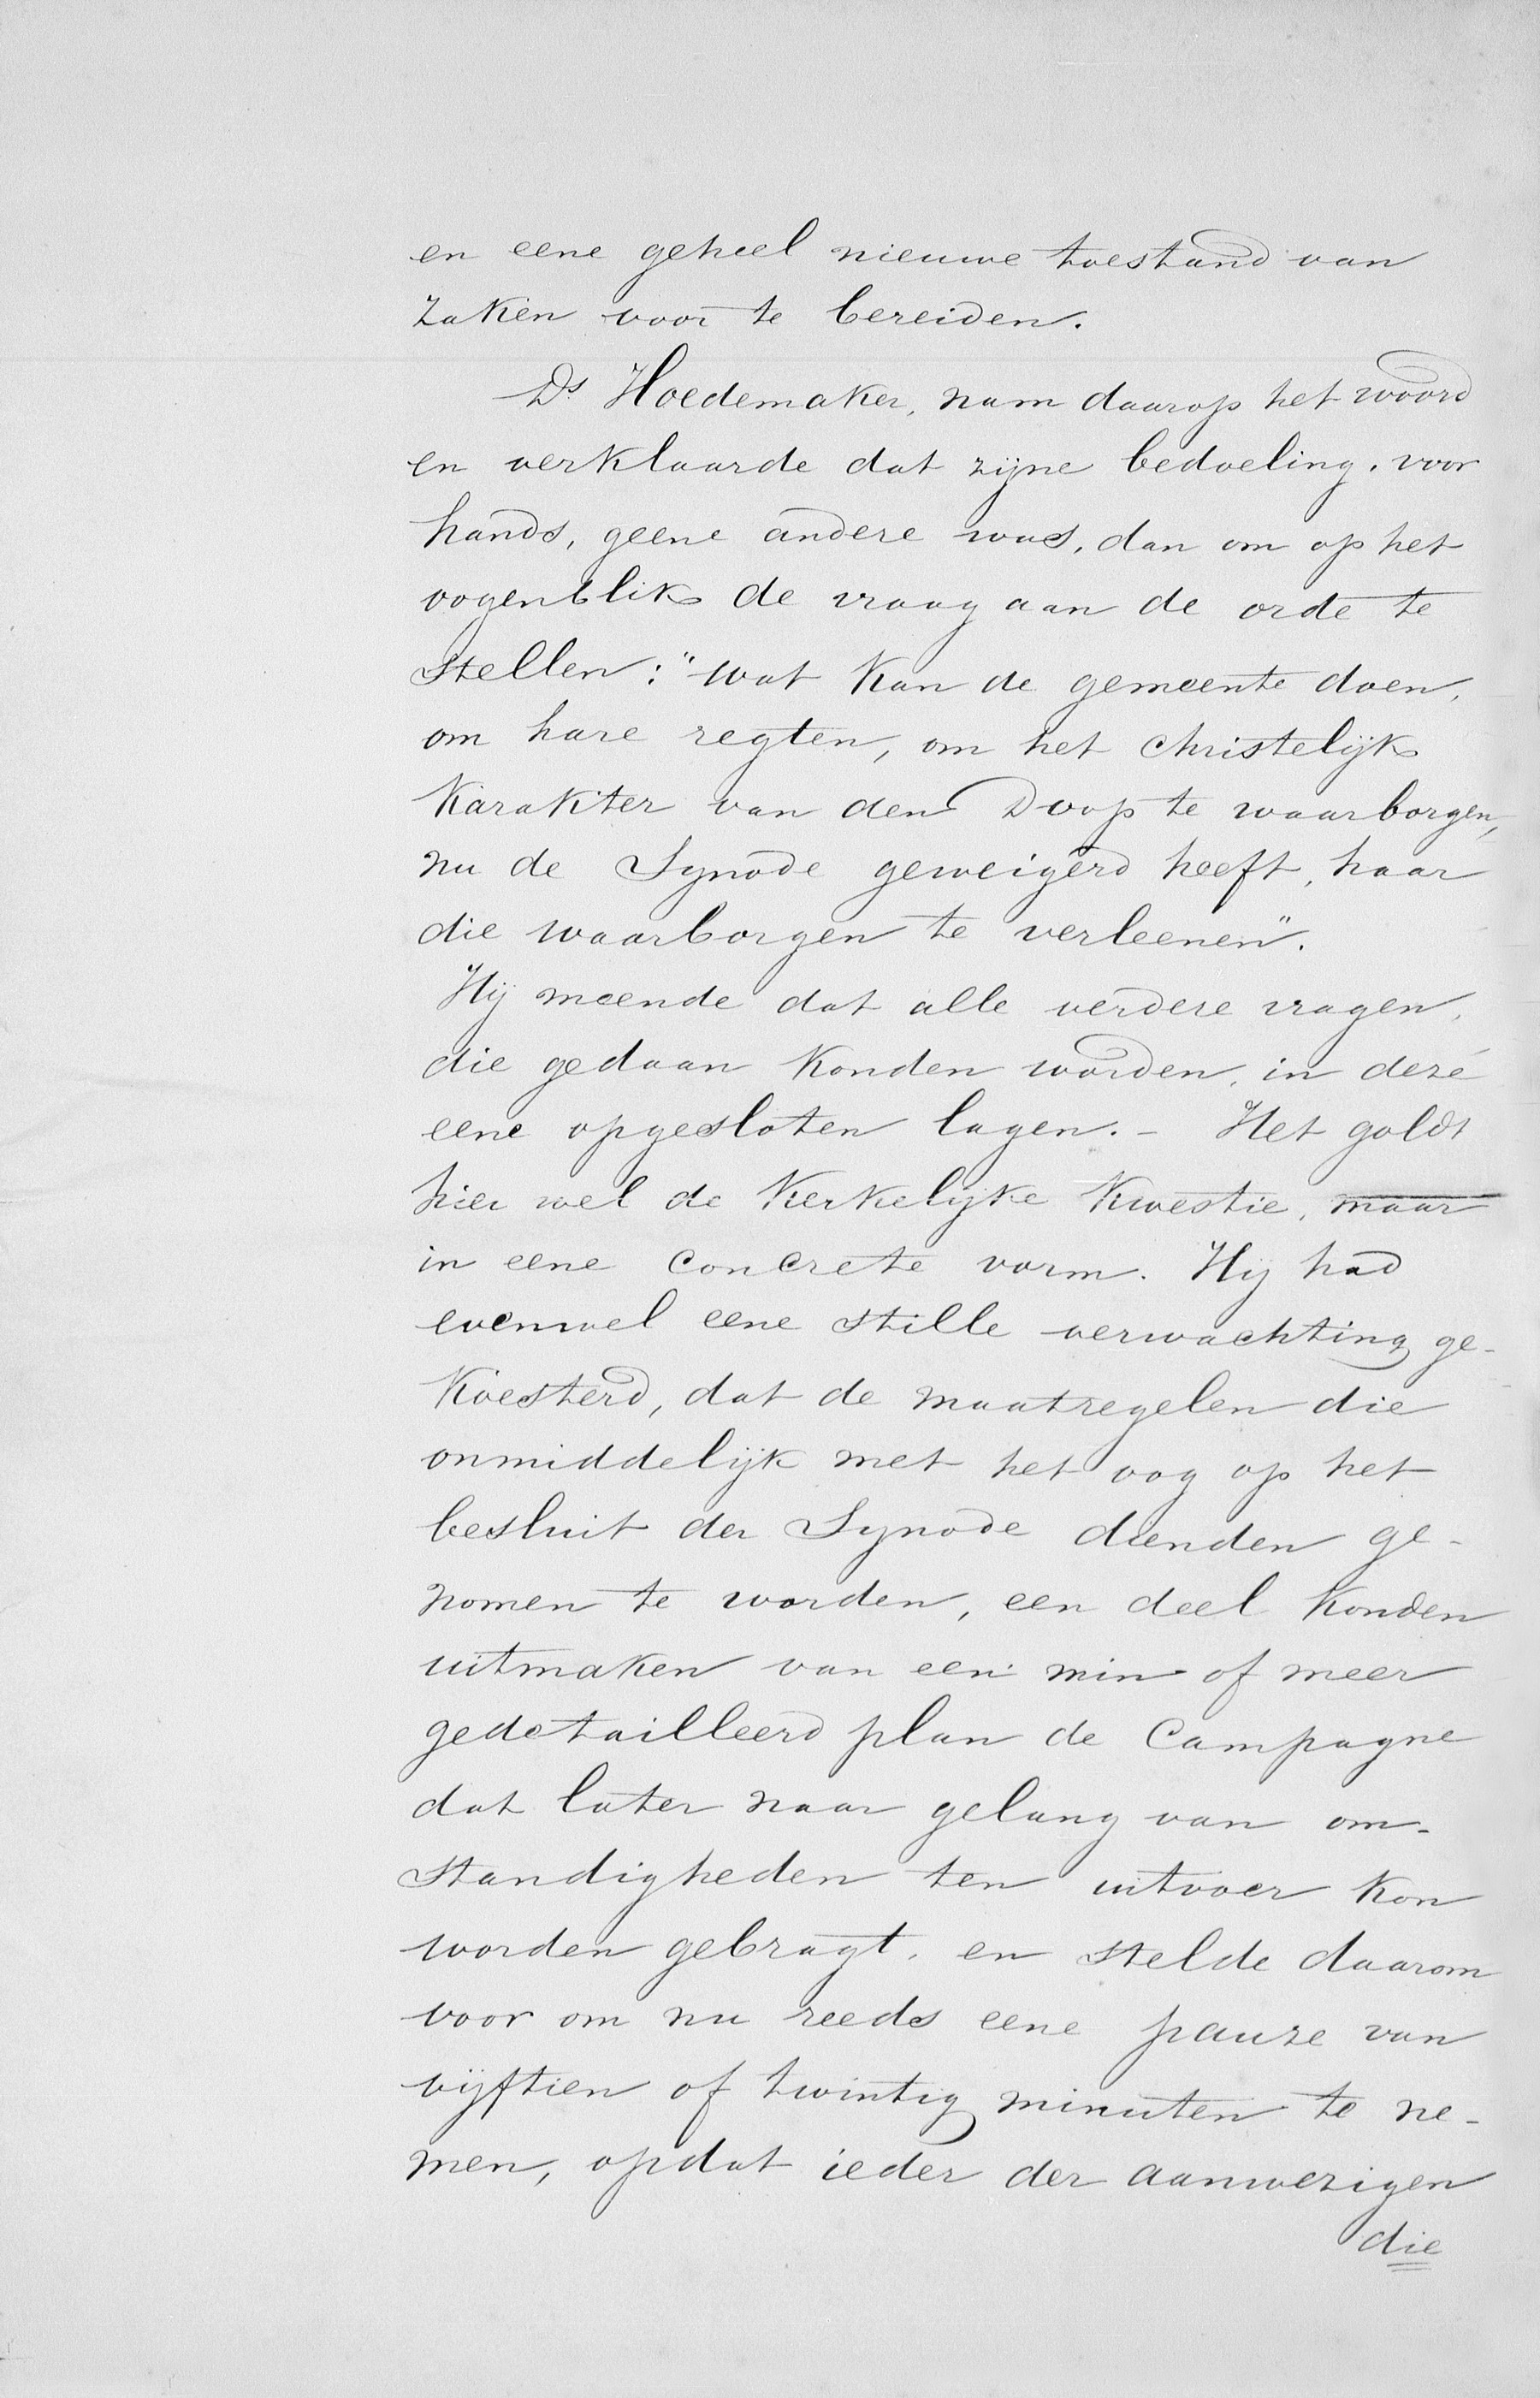 en eene geheel nieuwe toestand van
zaken voor te bereiden.
Ds Hoedemaker, nam daarop het woord
en verklaarde dat zijne bedoeling, voor
hands, geene andere was, dan om op het
oogenblik de vraag aan de orde te
stellen: "wat kan de gemeente doen,
om hare regten, om het christelijk
karakter van den Doop te waarborgen,
nu de Synode geweigerd heeft, haar
die waarborgen te verleenen".
Hij meende dat alle verdere vragen,
die gedaan konden worden, in deze
eene opgesloten lagen. - Het goldt
hier wel de kerkelijke kwestie, maar
in eene concrete vorm. Hij had
evenwel eene stille verwachting ge-
koesterd, dat de maatregelen die
onmiddelijk met het oog op het
besluit der Synode dienden ge-
nomen te worden, een deel konden
uitmaken van een min of meer
gedetailleerd plan de Campagne
dat later naar gelang van om-
standigheden ten uitvoer kon
worden gebragt, en stelde daarom
voor om nu reeds eene pauze van
vijftien of twintig minuten te ne-
men, opdat ieder der aanwezigen
die